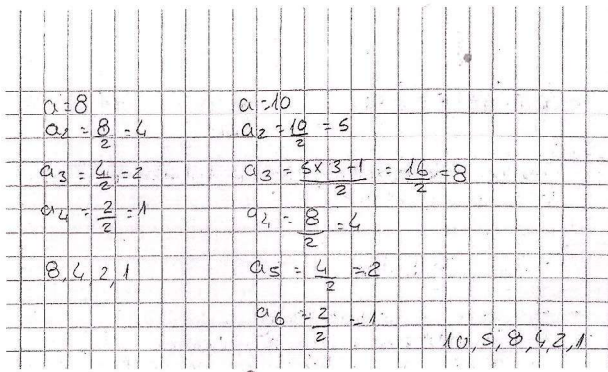 a=8
a2 = 8/2 = 4
a3 = 4/2 = 2
a4 = 2/2 = 1
8, 4, 2, 1
a=10
a2 = 10/2 = 5
a3 = (5x3+1)/2 = 16/2 = 8
a4 = 8/2 = 4
a5 = 4/2 = 2
a6 = 2/2 = 1
10, 5, 8, 4, 2, 1